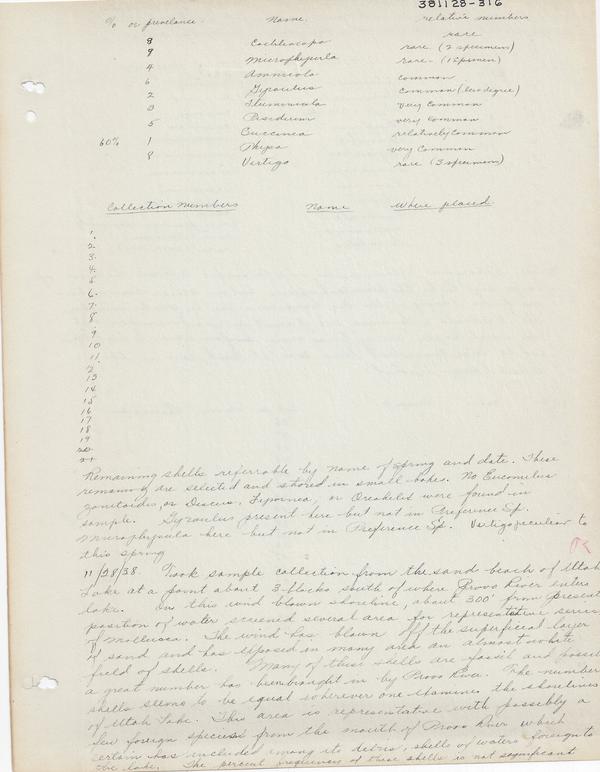 381128-316
% or prevelance. Name. relative numbers
8 Cochliocopa rare
9 Microphysula rare (2 specimens)
4 Amnicola rare- (1 Spimen)
6 Gyraulus common
2 Fluminicola Common (less degree)
3 Pisidium very common
5 Succinea very common
60% 1 Physa relatively common
8 Vertigo very common
rare (3 specimens)
Collection Numbers Name Where placed.
1.
2.
3.
4.
5
6.
7.
8.
9
10
11.
2.
13
14
15
16
17
18
19
20
21
Remaining shells referrable by name of spring and date. These
remaining are selected and stored in small boxes. No Euconulus
Zonitoides, or Discus, or Oreohelis were found in
sample. Gyraulus present here but not in Preference Sp.
Microphysula here but not in Preference Sp. Vertigo peculiar to
this spring
OK
11/28/38. Took sample collection from the sand beach of Utah
Lake at a point about 3-blocks south of where Provo River enters
lake. On this wind blown shoreline, about 300' from present
position of water screened several area for representative series
of Mollusca. The wind has blown off the superficial layer
of sand and has exposed in many area an almost white
field of shells. Many of these shells are fossil and possib
a great number has been brought in by Provo River. The number
shells seems to be equal wherever one examines the shorelines
of Utah Lake. This area is representative with possibly a
few foreign species from the mouth of Provo River which
certain has included among its debris, shells of waters foreign to
the lake. The percent frequences of these shells is not significant